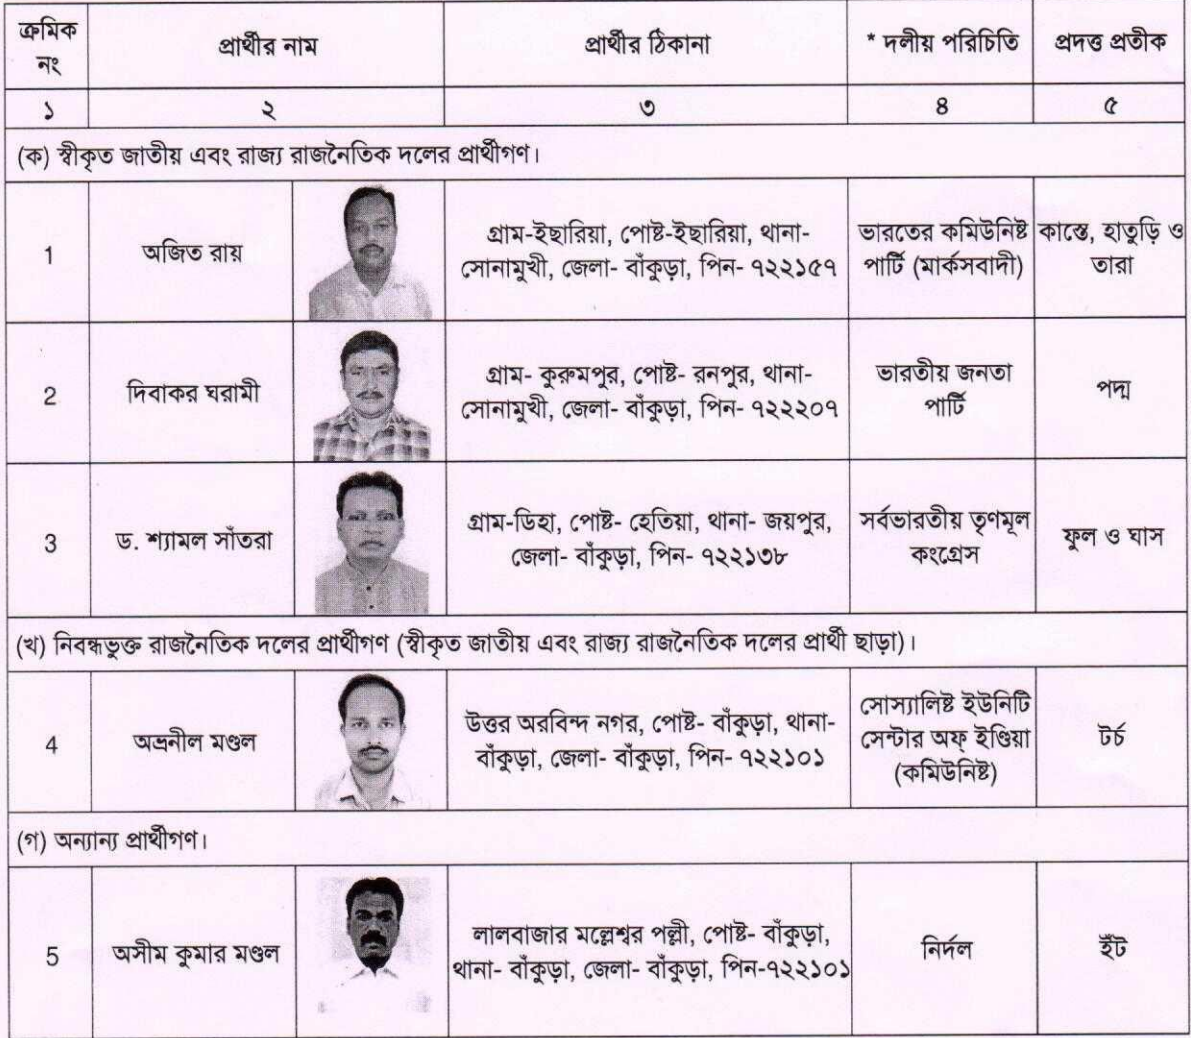 ক্রমিক নং
প্রার্থীর নাম
প্রার্থীর ঠিকানা
* দলীয় পরিচিতি
প্রদত্ত প্রতীক
১
২
৩
৪
৫
(ক) স্বীকৃত জাতীয় এবং রাজ্য রাজনৈতিক দলের প্রার্থীগণ।
1
অজিত রায়
গ্রাম-ইছারিয়া, পোষ্ট-ইছারিয়া, থানা-
সোনামুখী, জেলা- বাঁকুড়া, পিন- ৭২২১৫৭
ভারতের কমিউনিষ্ট
পার্টি (মার্কসবাদী)
কাস্তে, হাতুড়ি ও
তারা
2
দিবাকর ঘরামী
গ্রাম- কুরুমপুর, পোষ্ট- রনপুর, থানা-
সোনামুখী, জেলা- বাঁকুড়া, পিন- ৭২২২০৭
ভারতীয় জনতা
পার্টি
পদ্ম
3
ড. শ্যামল সাঁতরা
গ্রাম-ডিহা, পোষ্ট- হেতিয়া, থানা- জয়পুর,
জেলা- বাঁকুড়া, পিন- ৭২২১৩৮
সর্বভারতীয় তৃণমূল
কংগ্রেস
ফুল ও ঘাস
(খ) নিবন্ধভুক্ত রাজনৈতিক দলের প্রার্থীগণ (স্বীকৃত জাতীয় এবং রাজ্য রাজনৈতিক দলের প্রার্থী ছাড়া)।
4
অভ্রনীল মণ্ডল
উত্তর অরবিন্দ নগর, পোষ্ট- বাঁকুড়া, থানা-
বাঁকুড়া, জেলা- বাঁকুড়া, পিন- ৭২২১০১
সোস্যালিষ্ট ইউনিটি
সেন্টার অফ্ ইণ্ডিয়া
(কমিউনিষ্ট)
টর্চ
(গ) অন্যান্য প্রার্থীগণ।
5
অসীম কুমার মণ্ডল
লালবাজার মল্লেশ্বর পল্লী, পোষ্ট- বাঁকুড়া,
থানা- বাঁকুড়া, জেলা- বাঁকুড়া, পিন-৭২২১০১
নির্দল
ইঁট